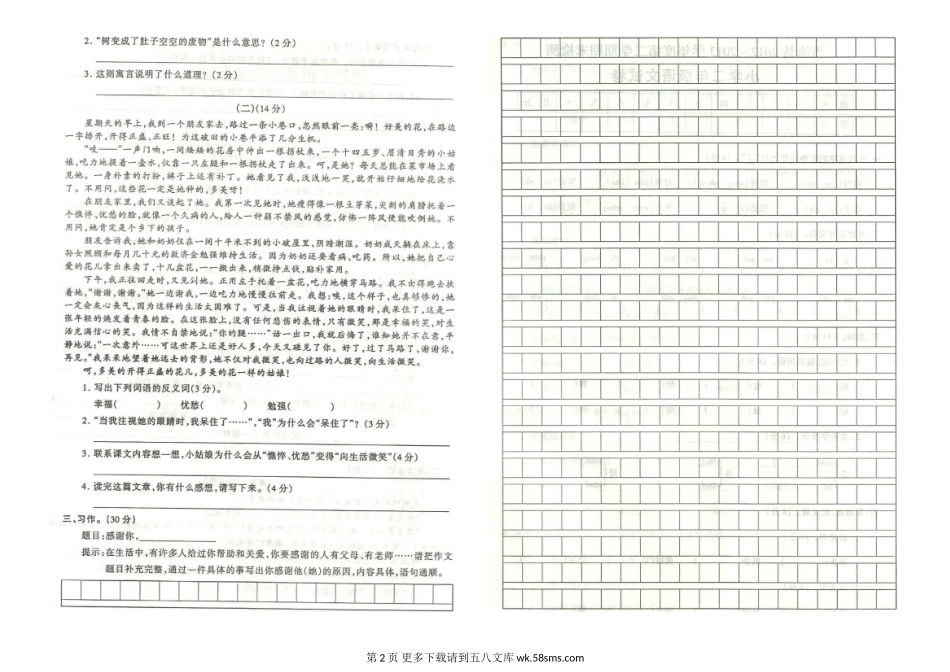 2. “树变成了肚子空空的废物”是什么意思？(2分)
3. 这则寓言说明了什么道理？(2分)
(二)(14分)
星期天的早上,我到一个朋友家去,路过一条小巷口,忽然眼前一亮:啊！好美的花,在路边
一字排开,开得正盛、正旺！为这破旧的小巷平添了几分生机。
“吱——”一声门响,一间矮矮的花房中伸出一根拐杖来,一个十四五岁、眉清目秀的小姑
娘,吃力地提着一壶水,仅靠一只左腿和一根拐杖走了出来。呵,是她？每天总能在菜市场上看
见她。一身朴素的打扮,裤子上还有补丁。她看见了我,浅浅地一笑,就开始仔细地给花浇水
了。不用问,这些花一定是她种的,多美呀！
在朋友家里,我们又谈起了她。我第一次见她时,她瘦得像一根豆芽菜,尖削的肩膀托着一
个憔悴、忧愁的脸,就像一个久病的人,给人一种弱不禁风的感觉,仿佛一阵风便能吹倒她。不
用问,她肯定是个乡下的孩子。
朋友告诉我,她和奶奶住在一间十平米不到的小破屋里,阴暗潮湿。奶奶成天躺在床上,靠
孙女照顾和每月几十元的救济金勉强维持生活。因为奶奶还要看病、吃药。所以,她把自己心
爱的花儿拿出来卖了,十几盆花,一一搬出来,稍微挣点钱,贴补家用。
下午,我正往回走时,又见到她。正用左手托着一盆花,吃力地横穿马路。我不由得跑去扶
着她,“谢谢,谢谢。”她一边谢我,一边吃力地慢慢往前走。我想:唉,这个样子,也真够惨的,她
一定会灰心丧气,因为这样的生活太困难了。可是,当我注视着她的眼睛时,我呆住了,这是一
张年轻的焕发着青春的脸。在这张脸上,没有任何悲伤的表情,只有微笑,那是幸福的笑,对生
活充满信心的笑。我情不自禁地说:“你的腿……”话一出口,我就后悔了,谁知她并不在意,平
静地说:“一次意外……可这世界上还是好人多,今天又碰见了你。好了,过了马路了,谢谢你,
再见。”我呆呆地望着她远去的背影,她不仅对我微笑,也向过路的人微笑,向生活微笑。
呵,多美的开得正盛的花儿,多美的花一样的姑娘！
1. 写出下列词语的反义词(3分)。
幸福(　　) 忧愁(　　) 勉强(　　)
2. “当我注视她的眼睛时,我呆住了……”,“我”为什么会“呆住了”？(3分)
3. 联系课文内容想一想,小姑娘为什么会从“憔悴、忧愁”变得“向生活微笑”(4分)
4. 读完这篇文章,你有什么感想,请写下来。(4分)
三、习作。(30分)
题目:感谢你,
提示:在生活中,有许多人给过你帮助和关爱,你要感谢的人有父母、有老师……请把作文
题目补充完整,通过一件具体的事写出你感谢他(她)的原因,内容具体,语句通顺。
第 2 页 更多下载请到五八文库 wk.58sms.com